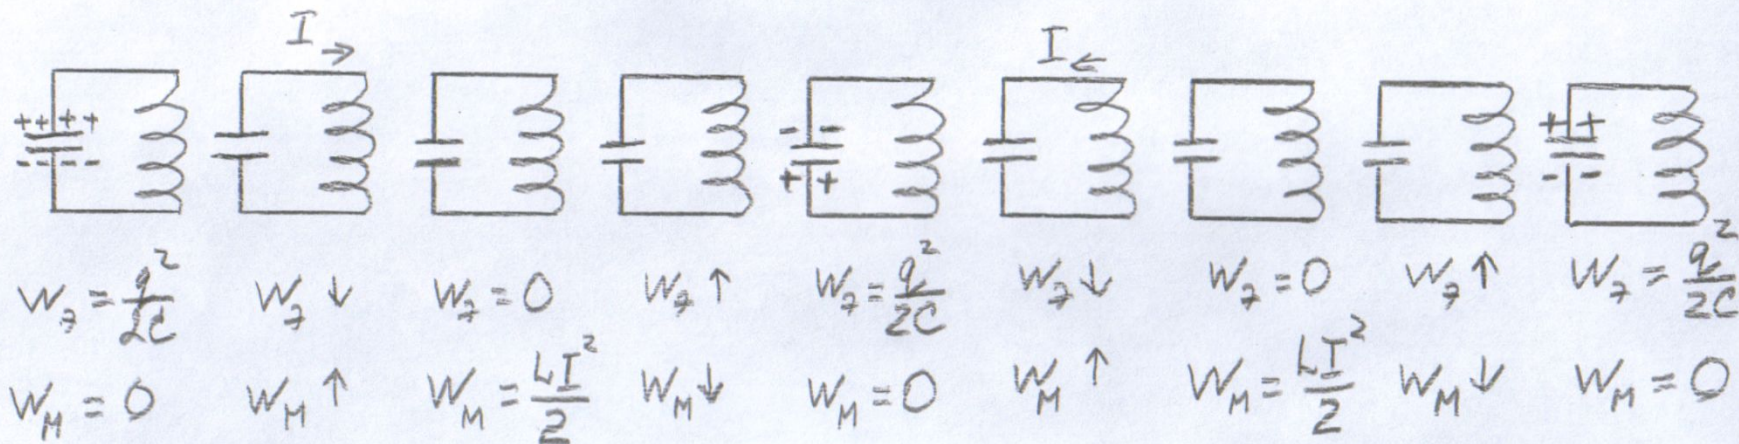 I → I ←
++++ - - + +
- - - - + + - -
Wэ = q²/2C Wэ ↓ Wэ = 0 Wэ ↑ Wэ = q²/2C Wэ ↓ Wэ = 0 Wэ ↑ Wэ = q²/2C
Wм = 0 Wм ↑ Wм = LI²/2 Wм ↓ Wм = 0 Wм ↑ Wм = LI²/2 Wм ↓ Wм = 0